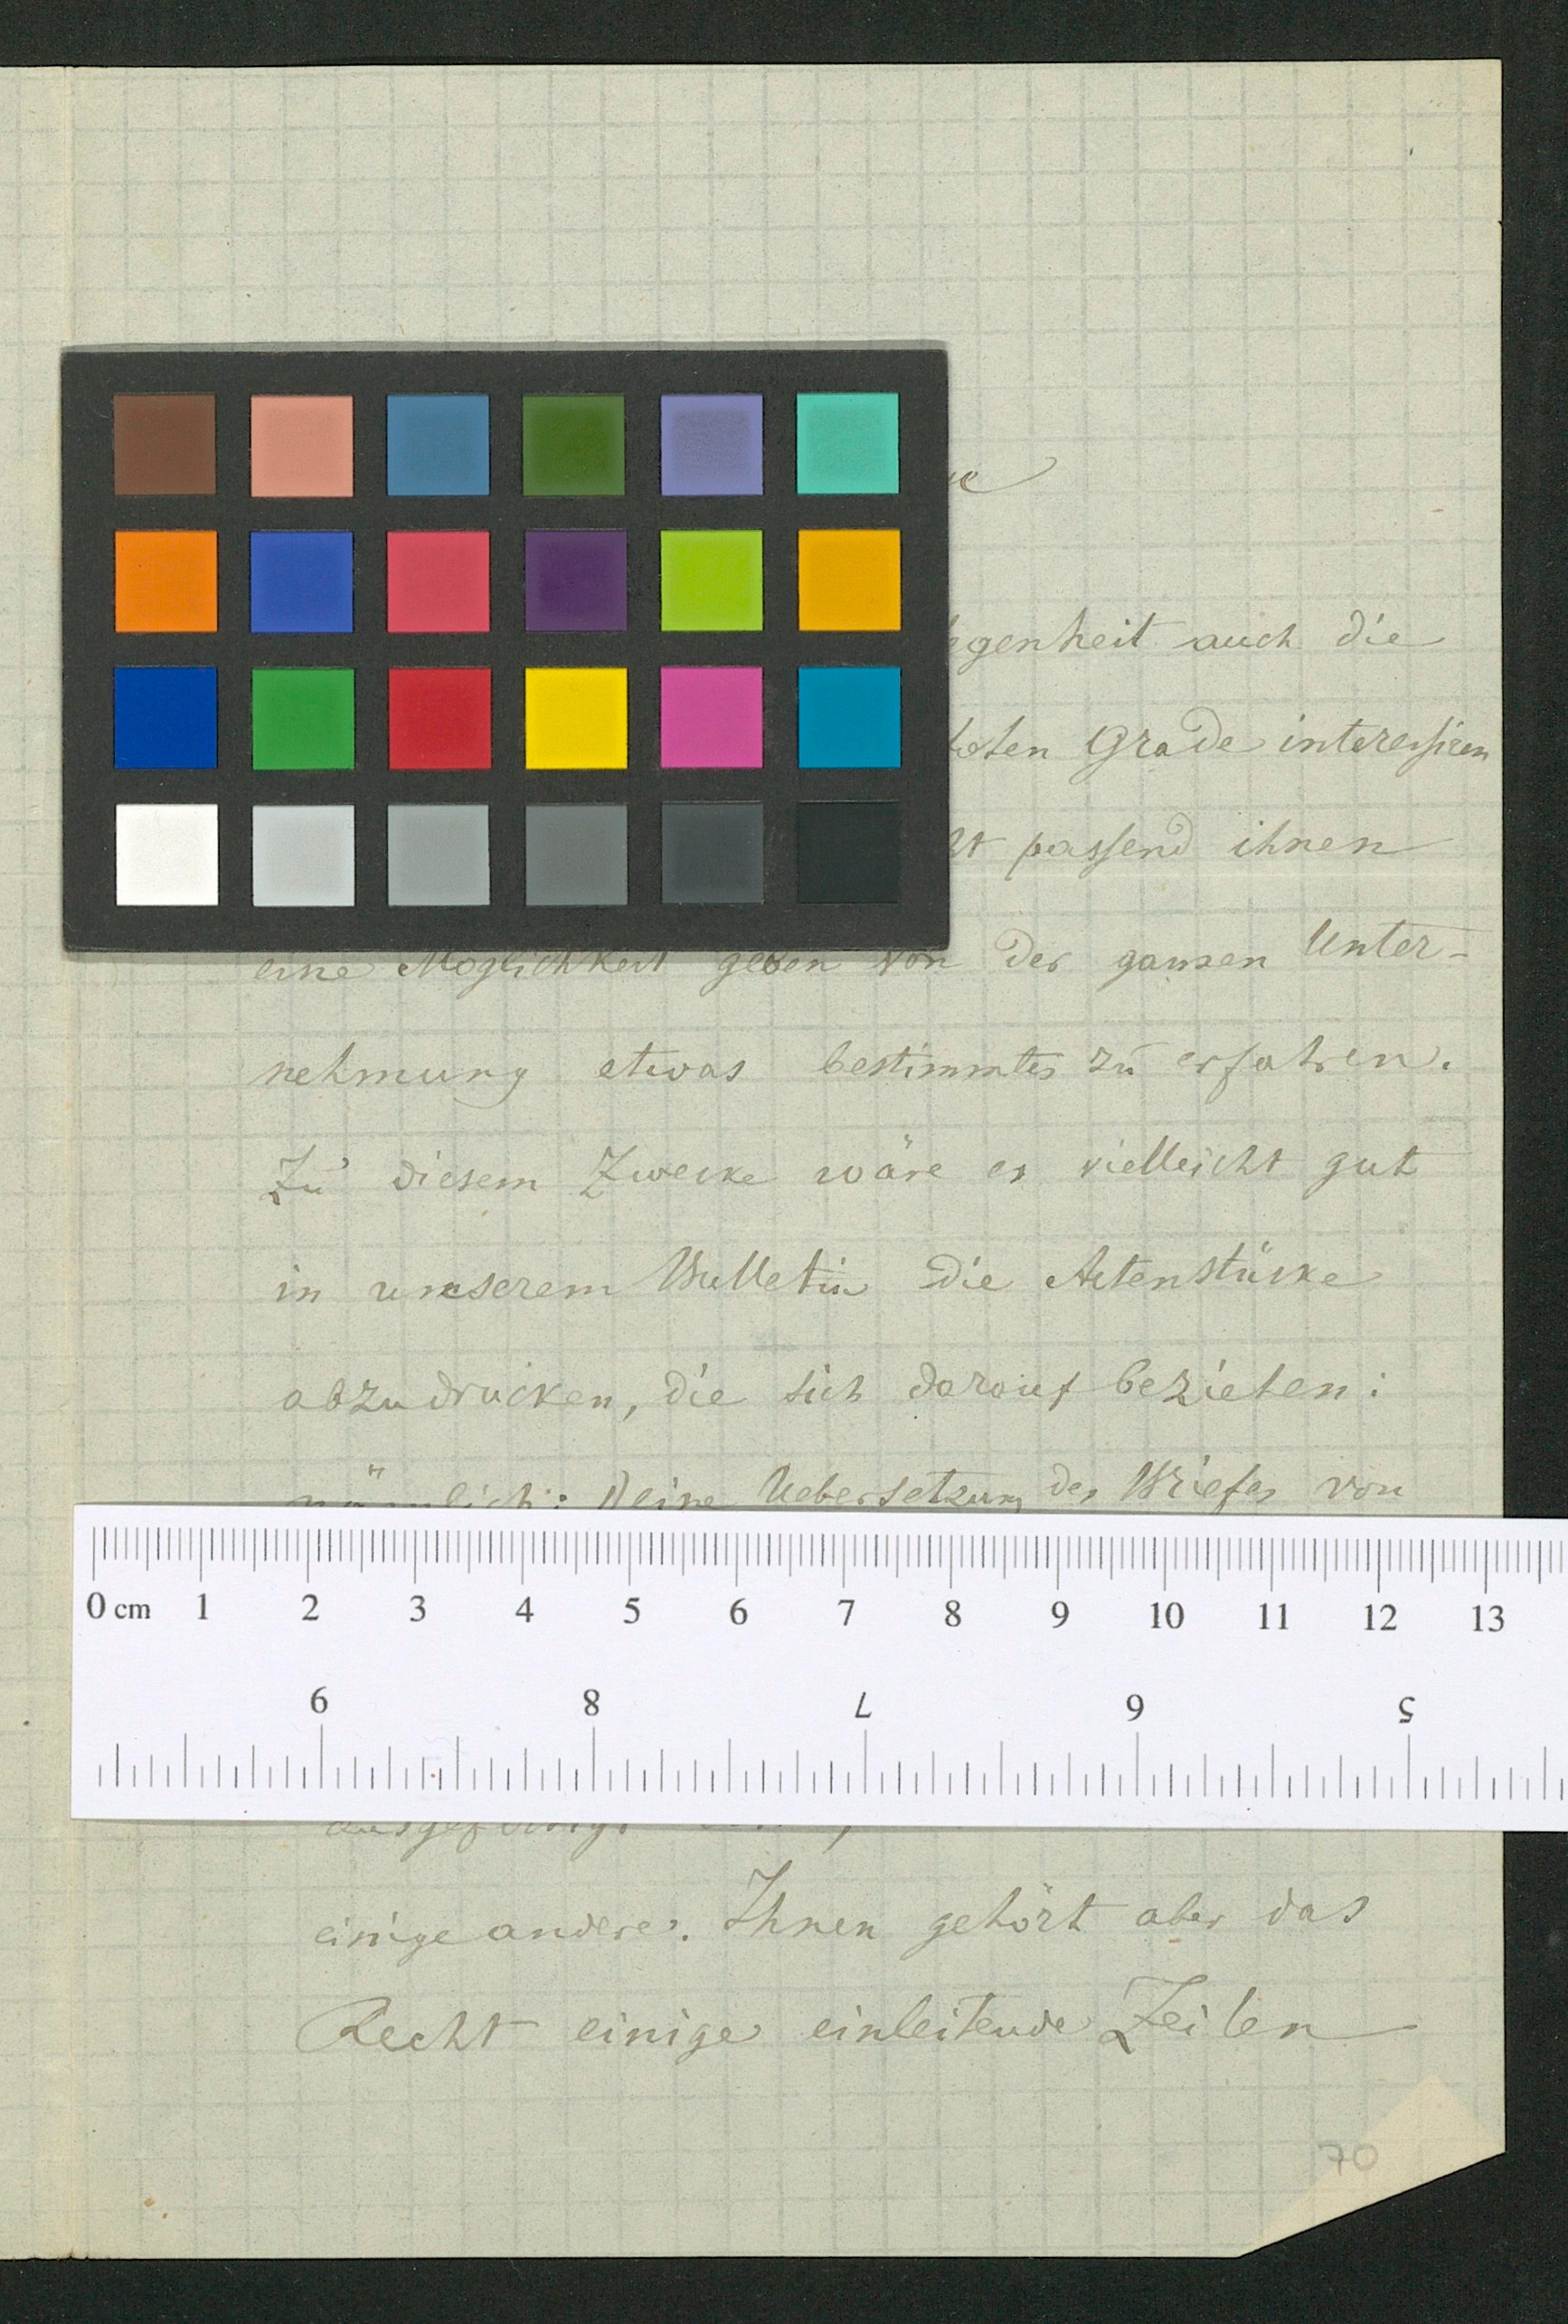 auch die
Grade interessiren
passend ihnen
eine Möglichkeit geben von der ganzen Unter-
nehmung etwas bestimmtes zu erfahren.
Zu diesem Zwecke wäre es vielleicht gut
in unserem Bulletin die Actenstücke
abzudrucken, die sich darauf beziehen:
nämlich: Deine Uebersetzung des Briefes von
0 cm 1 2 3 4 5 6 7 8 9 10 11 12 13
9 8 7 6 5
einige andere. Ihnen gehört aber das
Recht einige einleitende Zeilen
70